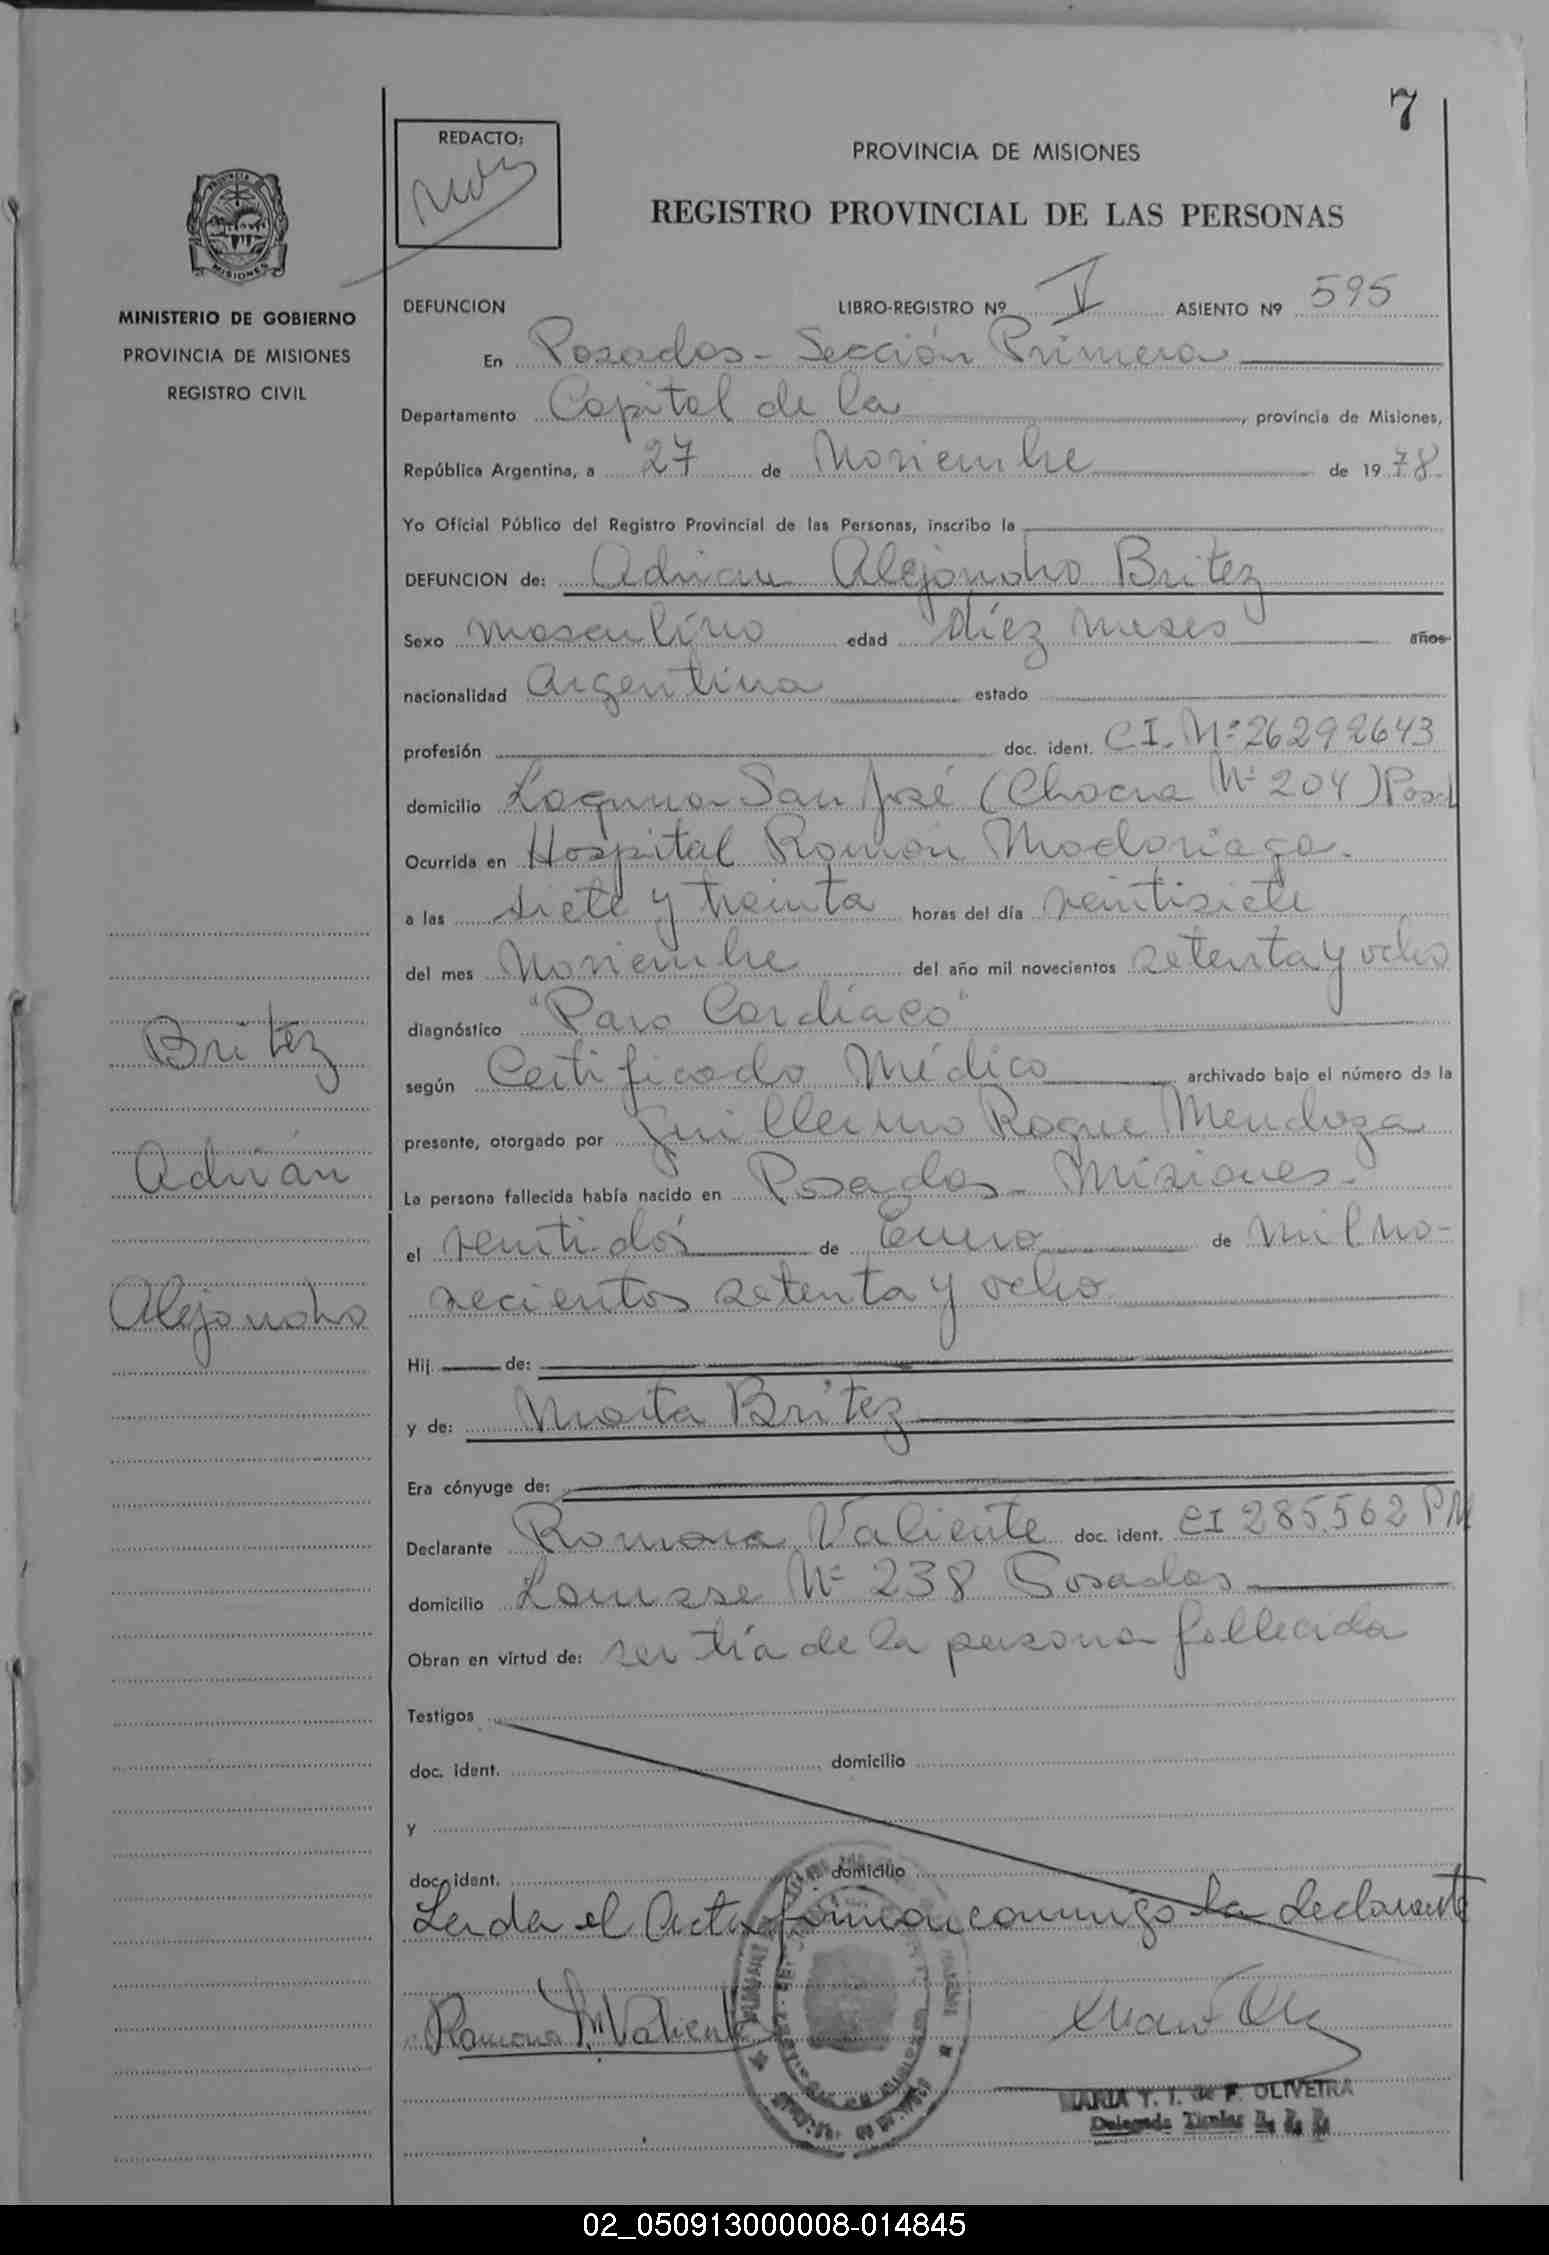 7
REDACTO:
PROVINCIA DE MISIONES
REGISTRO PROVINCIAL DE LAS PERSONAS
MISIONES
MINISTERIO DE GOBIERNO
PROVINCIA DE MISIONES
REGISTRO CIVIL
DEFUNCION LIBRO-REGISTRO Nº V ASIENTO Nº 595
En Posadas - Sección Primera
Departamento Capital de la , provincia de Misiones,
República Argentina, a 27 de Noviembre de 1978
Yo Oficial Público del Registro Provincial de las Personas, inscribo la
DEFUNCION de: Adrian Alejandro Britez
Sexo masculino edad diez meses años
nacionalidad Argentina estado
profesión doc. ident. C.I. Nº 26292643
domicilio Laguna San José (Chacra Nº 204) Posd
Ocurrida en Hospital Ramón Madariaga.
a las siete y treinta horas del día veintisiete
del mes Noviembre del año mil novecientos setenta y ocho
diagnóstico "Paro Cardíaco"
según Certificado Médico archivado bajo el número de la
presente, otorgado por Guillermo Roque Mendoza
La persona fallecida había nacido en Posadas - Misiones -
el veintidós de Enero de mil no-
vecientos setenta y ocho
Hij de:
y de: Marta Britez
Era cónyuge de:
Declarante Ramona Valiente doc. ident. CI 285.562 PM
domicilio Nº 238 Posadas
Obran en virtud de: ser tía de la persona fallecida
Testigos
doc. ident. domicilio
y
doc. ident. domicilio
Leída el Acta firman conmigo la declarante
Ramona M. Valiente
MARIA T. I. de F. OLIVEIRA
Delegada Titular R. P. P.
Britez
Adrián
Alejandro
02_050913000008-014845